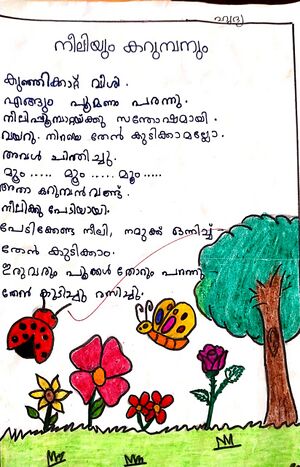 ഹൃദ്യ
നീലിയും കറുമ്പനും
കുഞ്ഞിക്കാറ്റ് വീശി.
എങ്ങും പൂമണം പരന്നു.
നീലിപൂമ്പാറ്റയ്ക്കു സന്തോഷമായി.
വയറു നിറയെ തേൻ കുടിക്കാമല്ലോ.
അവൾ ചിന്തിച്ചു.
മൂം..... മൂം..... മൂം.....
അതാ കറുമ്പൻവണ്ട്.
നീലിക്കു പേടിയായി.
പേടിക്കേണ്ട നീലി, നമുക്ക് ഒന്നിച്ച്
തേൻ കുടിക്കാം.
ഇരുവരും പൂക്കൾ തോറും പറന്നു
തേൻ കുടിച്ചു രസിച്ചു.